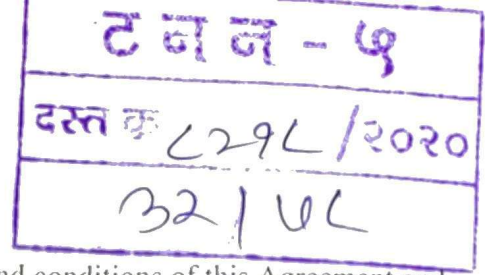 ट न न - ५
दस्त क्र ८२१८/२०२०
३२/५८
conditions of this Agreement